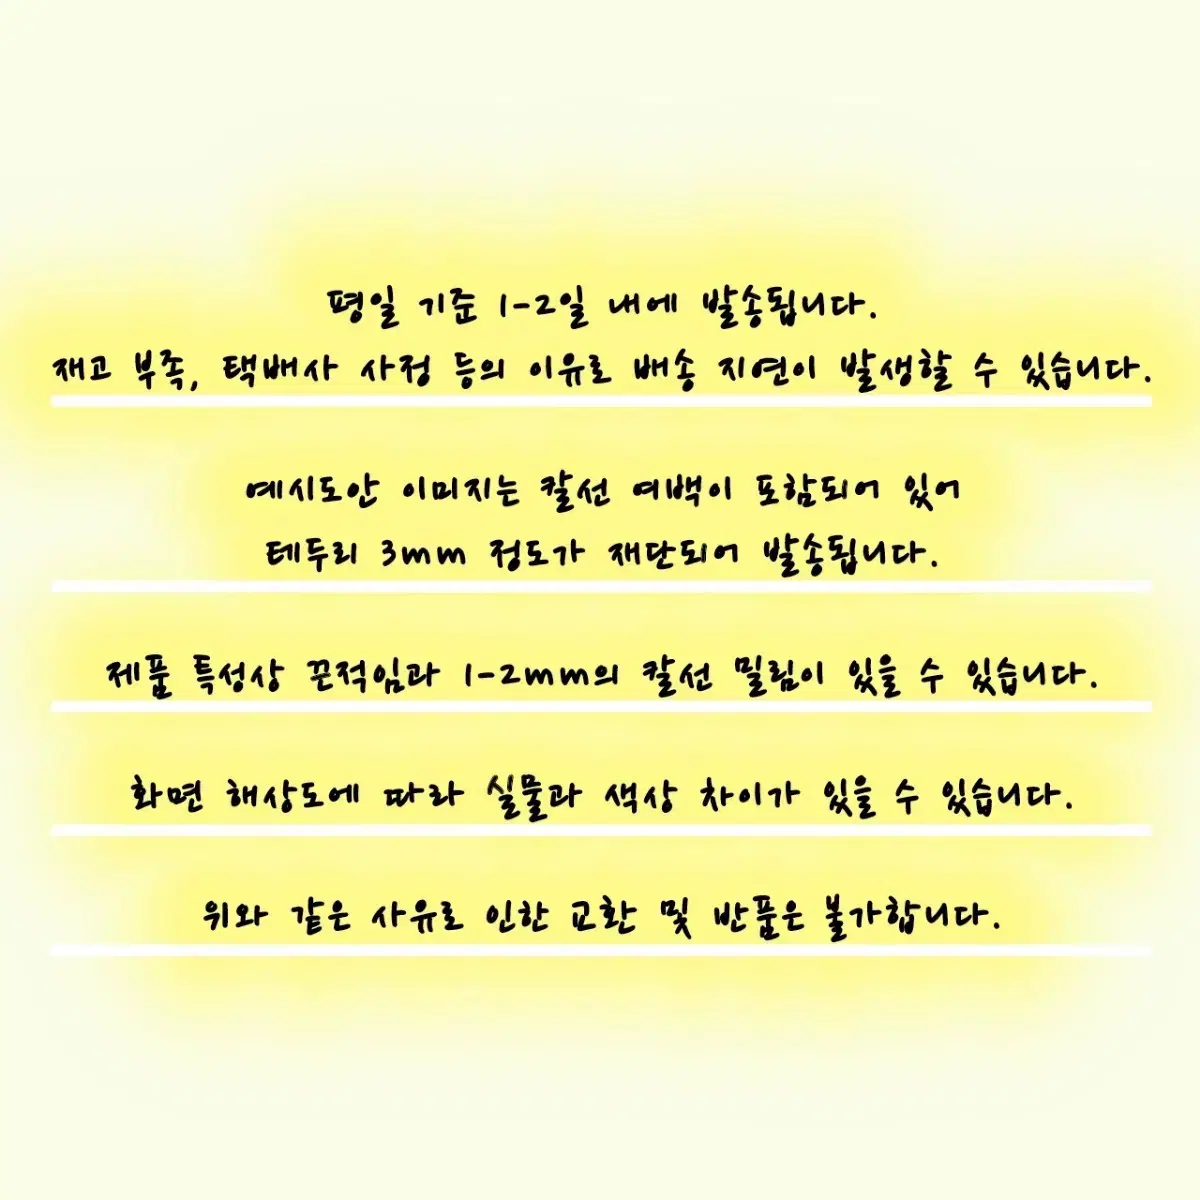 평일 기준 1-2일 내에 발송됩니다.
재고 부족, 택배사 사정 등의 이유로 배송 지연이 발생할 수 있습니다.
예시도안 이미지는 칼선 여백이 포함되어 있어
테두리 3mm 정도가 재단되어 발송됩니다.
제품 특성상 끈적임과 1-2mm의 칼선 밀림이 있을 수 있습니다.
화면 해상도에 따라 실물과 색상 차이가 있을 수 있습니다.
위와 같은 사유로 인한 교환 및 반품은 불가합니다.